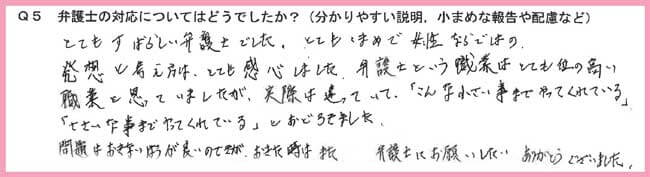 Q5 弁護士の対応についてはどうでしたか？（分かりやすい説明，小まめな報告や配慮など）
とてもすばらしい弁護士でした。とてもまめで女性ならではの
発想と考え方は、とても感心しました。弁護士という職業はとても位の高い
職業と思っていましたが、実際は違っていて、「こんな小さい事までやってくれている」
「ささいな事までやってくれている」とおどろきました。
問題はおきないほうが良いのですが、おきた時はまた 弁護士にお願いしたい ありがとうございました。